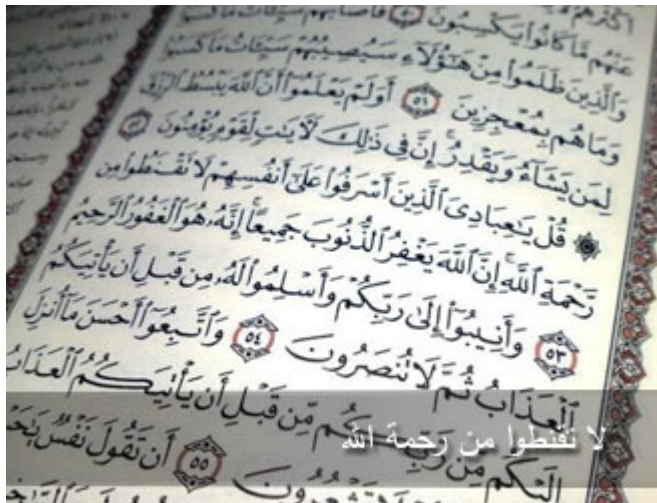 أَكْثَرُهُمْ
عَنْهُم مَّا كَانُوا۟ يَكْسِبُونَ ﴿٥٠﴾ فَأَصَابَهُمْ سَيِّـَٔاتُ مَا كَسَبُوا۟
وَٱلَّذِينَ ظَلَمُوا۟ مِنْ هَـٰٓؤُلَآءِ سَيُصِيبُهُمْ سَيِّـَٔاتُ مَا كَسَبُوا۟
وَمَا هُم بِمُعْجِزِينَ ﴿٥١﴾ أَوَلَمْ يَعْلَمُوٓا۟ أَنَّ ٱللَّهَ يَبْسُطُ ٱلرِّزْقَ
لِمَن يَشَآءُ وَيَقْدِرُ ۚ إِنَّ فِى ذَٰلِكَ لَـَٔايَـٰتٍ لِّقَوْمٍ يُؤْمِنُونَ ﴿٥٢﴾
۞ قُلْ يَـٰعِبَادِىَ ٱلَّذِينَ أَسْرَفُوا۟ عَلَىٰٓ أَنفُسِهِمْ لَا تَقْنَطُوا۟ مِن
رَّحْمَةِ ٱللَّهِ ۚ إِنَّ ٱللَّهَ يَغْفِرُ ٱلذُّنُوبَ جَمِيعًا ۚ إِنَّهُۥ هُوَ ٱلْغَفُورُ ٱلرَّحِيمُ
﴿٥٣﴾ وَأَنِيبُوٓا۟ إِلَىٰ رَبِّكُمْ وَأَسْلِمُوا۟ لَهُۥ مِن قَبْلِ أَن يَأْتِيَكُمُ
ٱلْعَذَابُ ثُمَّ لَا تُنصَرُونَ ﴿٥٤﴾ وَٱتَّبِعُوٓا۟ أَحْسَنَ مَآ أُنزِلَ
إِلَيْكُم مِّن رَّبِّكُم مِّن قَبْلِ أَن يَأْتِيَكُمُ ٱلْعَذَابُ
تَشْعُرُونَ ﴿٥٥﴾ أَن تَقُولَ نَفْسٌ
لا تقنطوا من رحمة الله